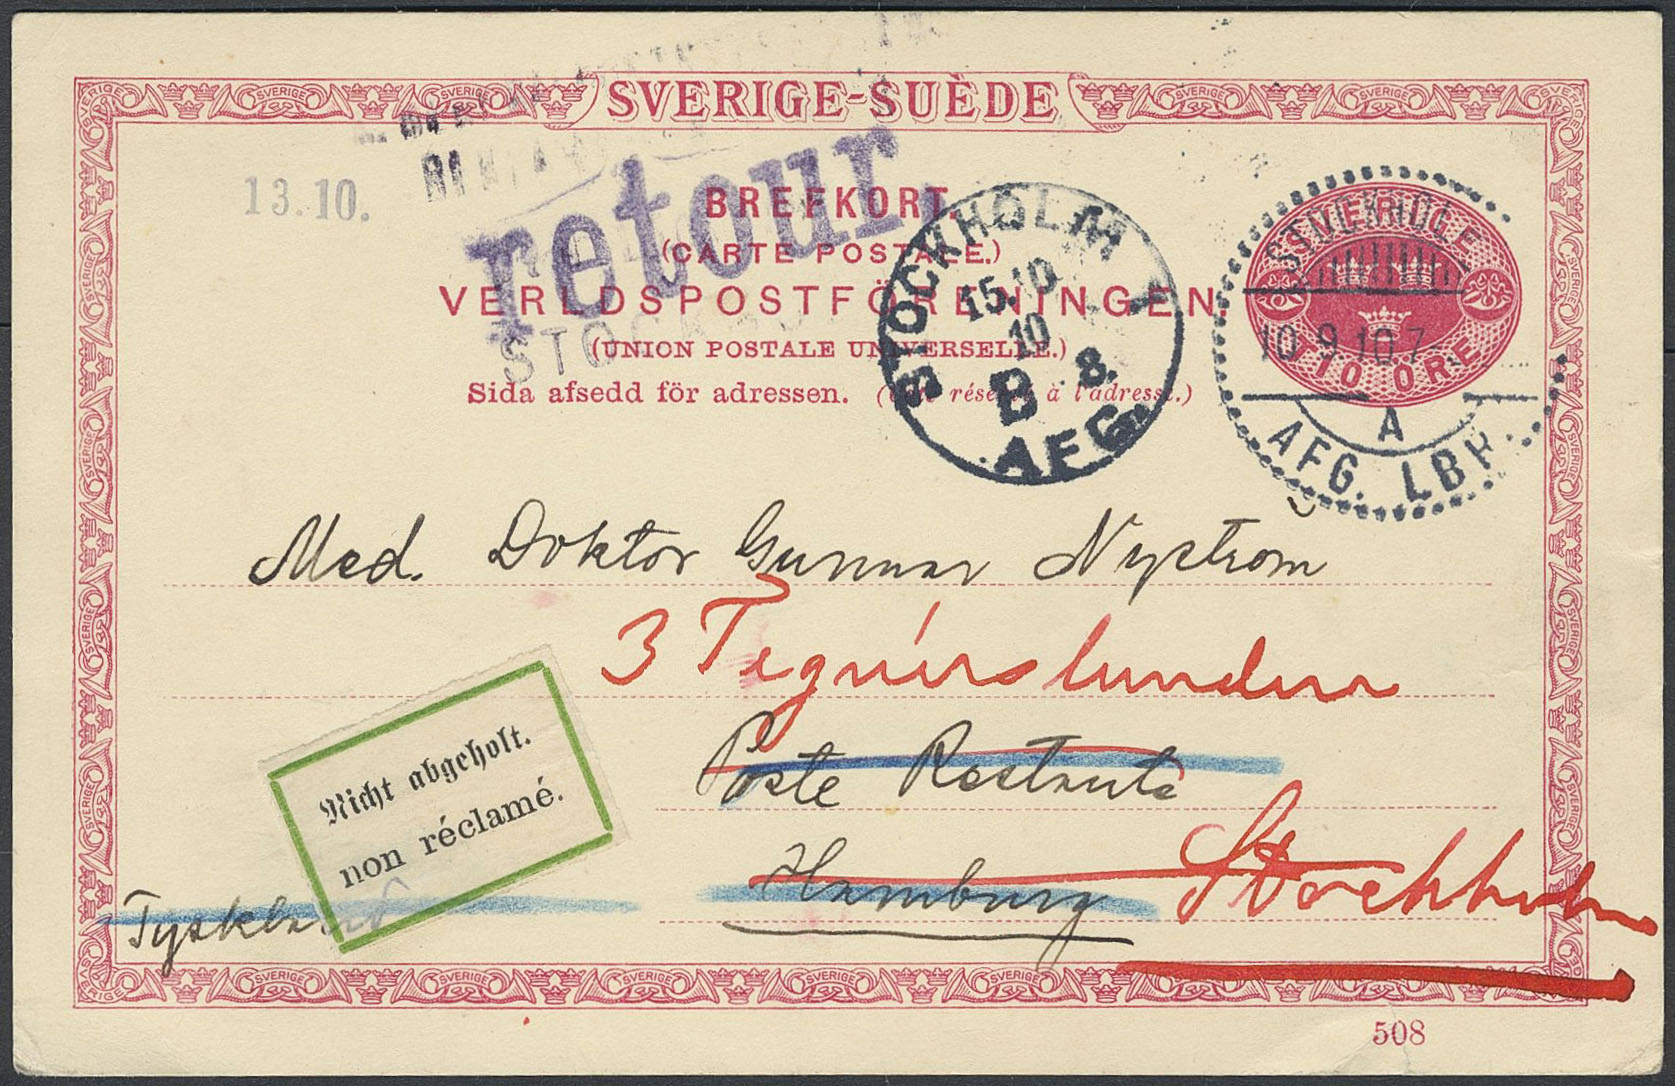 SVERIGE-SUÈDE
13.10.
retour.
BREFKORT
(CARTE POSTALE.)
VERLDSPOSTFÖRENINGEN.
(UNION POSTALE UNIVERSELLE.)
Sida afsedd för adressen. (Côté réservé à l'adresse.)
STOCKHOLM 1
15.10
10
B 8.
AFG.
10 ÖRE
10 9 10 7
A
AFG. LBR.
Med. Doktor Gunnar Nyström
3 Tegnérslunden
Poste Restante
Nicht abgeholt.
non réclamé.
Hamburg Stockholm
Tyskland
508